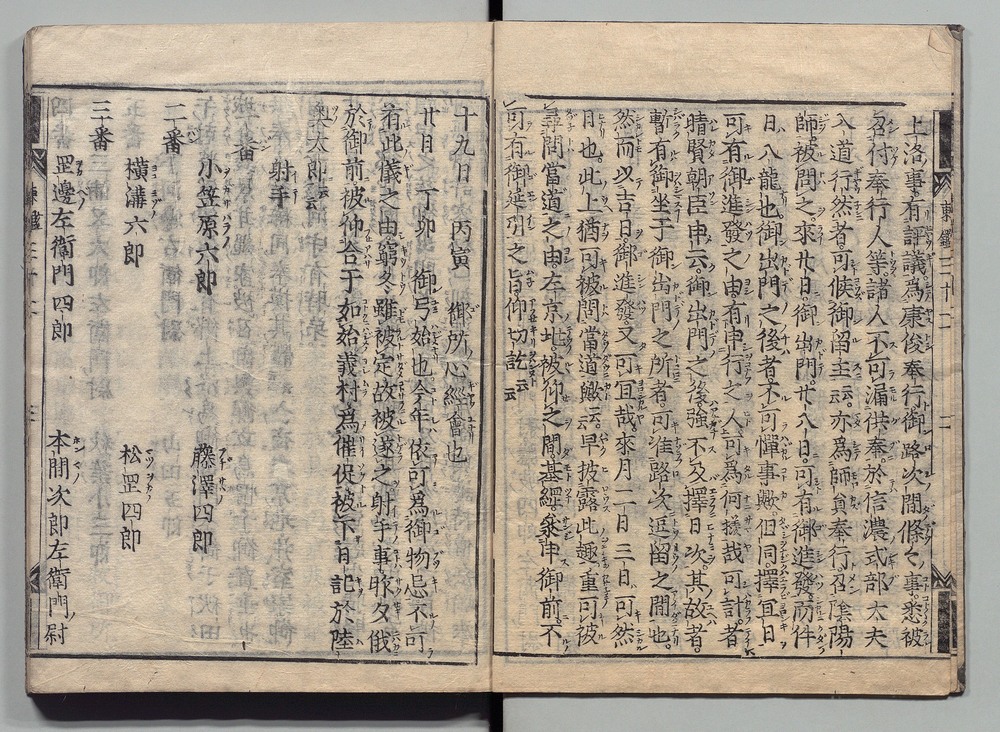 上洛事有評議爲康俊奉行御路次間條々事悉被
召付奉行人等諸人不可漏供奉於信濃式部大夫
入道行然者可候御留主云云亦爲師員奉行召陰陽
師被問之來廿日御出門廿八日可有御進發所件
日八龍也御出門之後者不可憚事歟但同擇宜日
可有御進發之由有申行之人可爲何樣哉可計者
晴賢朝臣申云御出門之後強不及擇日次其故者
暫有御坐于御出門之所者可准路次逗留之間也
然而以吉日御進發又可宜哉來月二日三日可然
日也此上猶可被問當道歟云云早披露此趣重可被
尋問當道之由左京地被仰之間基綱參申御前不
可有御延引之旨仰切訖云云
東鑑三十二
十九日　丙寅　御所心經會也
廿日　丁卯　御弓始也今年依可爲御物忌不可
有此儀之由窮冬雖被定故被遂之射手事昨夕俄
於御前被仰合于如始義村爲催促被下日記於陸
奥太郎云云
射手
一番
小笠原六郎　藤澤四郎
二番
横溝六郎　松罡四郎
三番
罡邊左衞門四郎　本間次郎左衞門尉